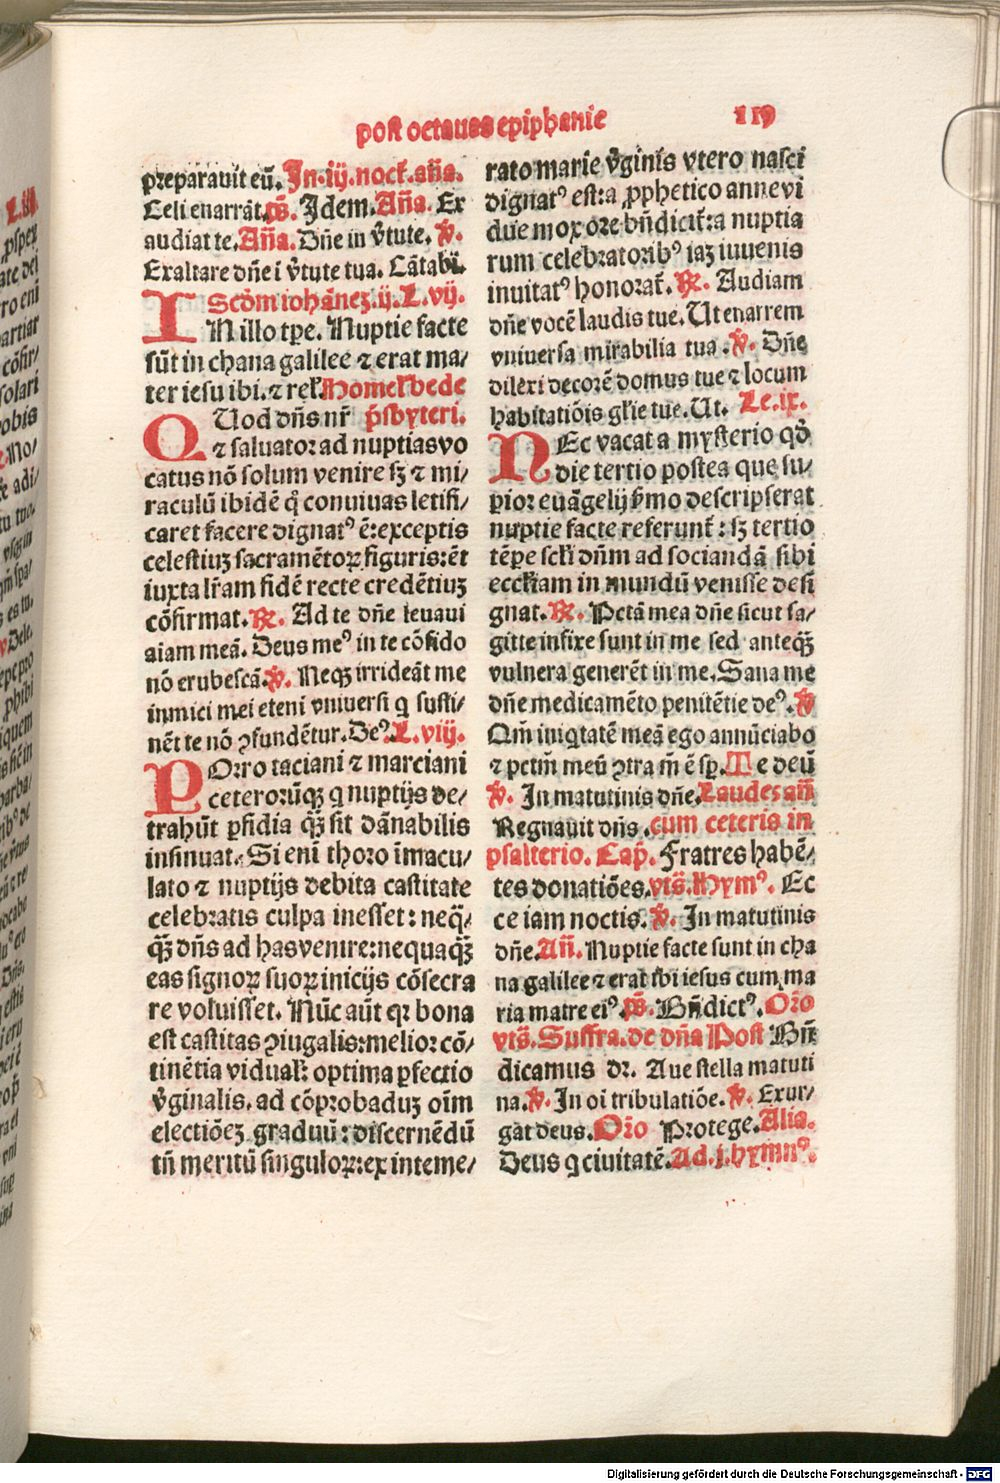 post octauas epiphanie 119
preparauit eū. In.ij.nocť.aña.
Celi enarrāt.ps̄. Idem.Aña. Ex
audiat te.Aña. Dñe in v̄tute. ℣.
Exaltare dñe i v̄tute tua. Cātabi.
Scḋm iohānez.ij.L.vij.
IN illo tpe. Nuptie facte
sūt in chana galilee ⁊ erat ma⸗
ter iesu ibi.⁊ reł. Homeł bede
QUod dñs nr̄ p̄sbyteri.
⁊ saluator ad nuptias vo
catus nō solum venire sꝫ ⁊ mi⸗
raculū ibidē q̇ conuiuas letifi⸗
caret facere dignatꝰ ē:exceptis
celestiuꝫ sacramētoꝝ figuris:ēt
iuxta lr̄am fidē recte credētiuꝫ
cōfirmat.℟. Ad te dñe leuaui
aiam meā. Deus meꝰ in te cōfido
nō erubescā.℣. Neqꝫ irrideāt me
inimici mei eteni vniuersi q susti⸗
nēt te nō ꝯfundētur. Deꝰ.L.viij.
POrro taciani ⁊ marciani
ceterorūqꝫ q nuptijs de⸗
trahūt ꝑfidia qꝫ̄ sit dānabilis
insinuat. Si enī thoro īmacu⸗
lato ⁊ nuptijs debita castitate
celebratis culpa inesset: neq̄⸗
qꝫ̄ dñs ad has venire:nequaqꝫ̄
eas signoꝝ suoꝝ inicijs cōsecra
re voluisset. Nūc aūt qꝛ bona
est castitas ꝯiugalis:melior cō⸗
tinētia vidualꝭ: optima ꝑfectio
v̄ginalis. ad cōprobaduꝫ oīm
electiōeꝫ graduū: discernēdū
tn̄ meritū singuloꝝ:ex inteme⸗
rato marie v̄ginis vtero nasci
dignatꝰ est:a ꝓphetico anne vi
due mox ore bn̄dicit̄:a nuptia
rum celebratoribꝰ iaꝫ iuuenis
inuitatꝰ honorat̄. ℟. Audiam
dñe vocē laudis tue. Ut enarrem
vniuersa mirabilia tua .℣. Dñe
dilexi decorē domus tue ⁊ locum
habitatiōis glie tue. Ut. Le.ix.
NEc vacat a mysterio qḋ
die tertio postea que su⸗
pior euāgelij s̄mo descripserat
nuptie facte referunt̄: sꝫ tertio
tēpe scli dñm ad sociandā sibi
eccliam in mundū venisse desi
gnat. ℟. Pctā mea dñe sicut sa⸗
gitte infixe sunt in me sed anteqꝫ̄
vulnera generēt in me. Sana me
dñe medicamēto penitētie deꝰ. ℣
Qm̄ iniqtatē meā ego annūciabo
⁊ pctm̄ meū ꝯtra m̄ ē sꝑ. Te deū
℣. In matutinis dñe. Laudes añ
Regnauit dñs .cum ceteris in
psalterio. Cap̄. Fratres habē⸗
tes donatiōes.vts̄.Hymꝰ. Ec
ce iam noctis. ℣. In matutinis
dñe. Añ. Nuptie facte sunt in cha
na galilee ⁊ erat ibi iesus cum ma
ria matre eiꝰ. ps̄. Bn̄dictꝰ. Orō
vts̄. Suffra. de dña Post Bn̄
dicamus dr̄. Aue stella matuti
na. ℣. In oi tribulatiōe. ℣. Exur⸗
gat deus. Orō Protege. Alia.
Deus q ciuitatē. Ad.j.hymnꝰ.
Digitalisierung gefördert durch die Deutsche Forschungsgemeinschaft - DFG